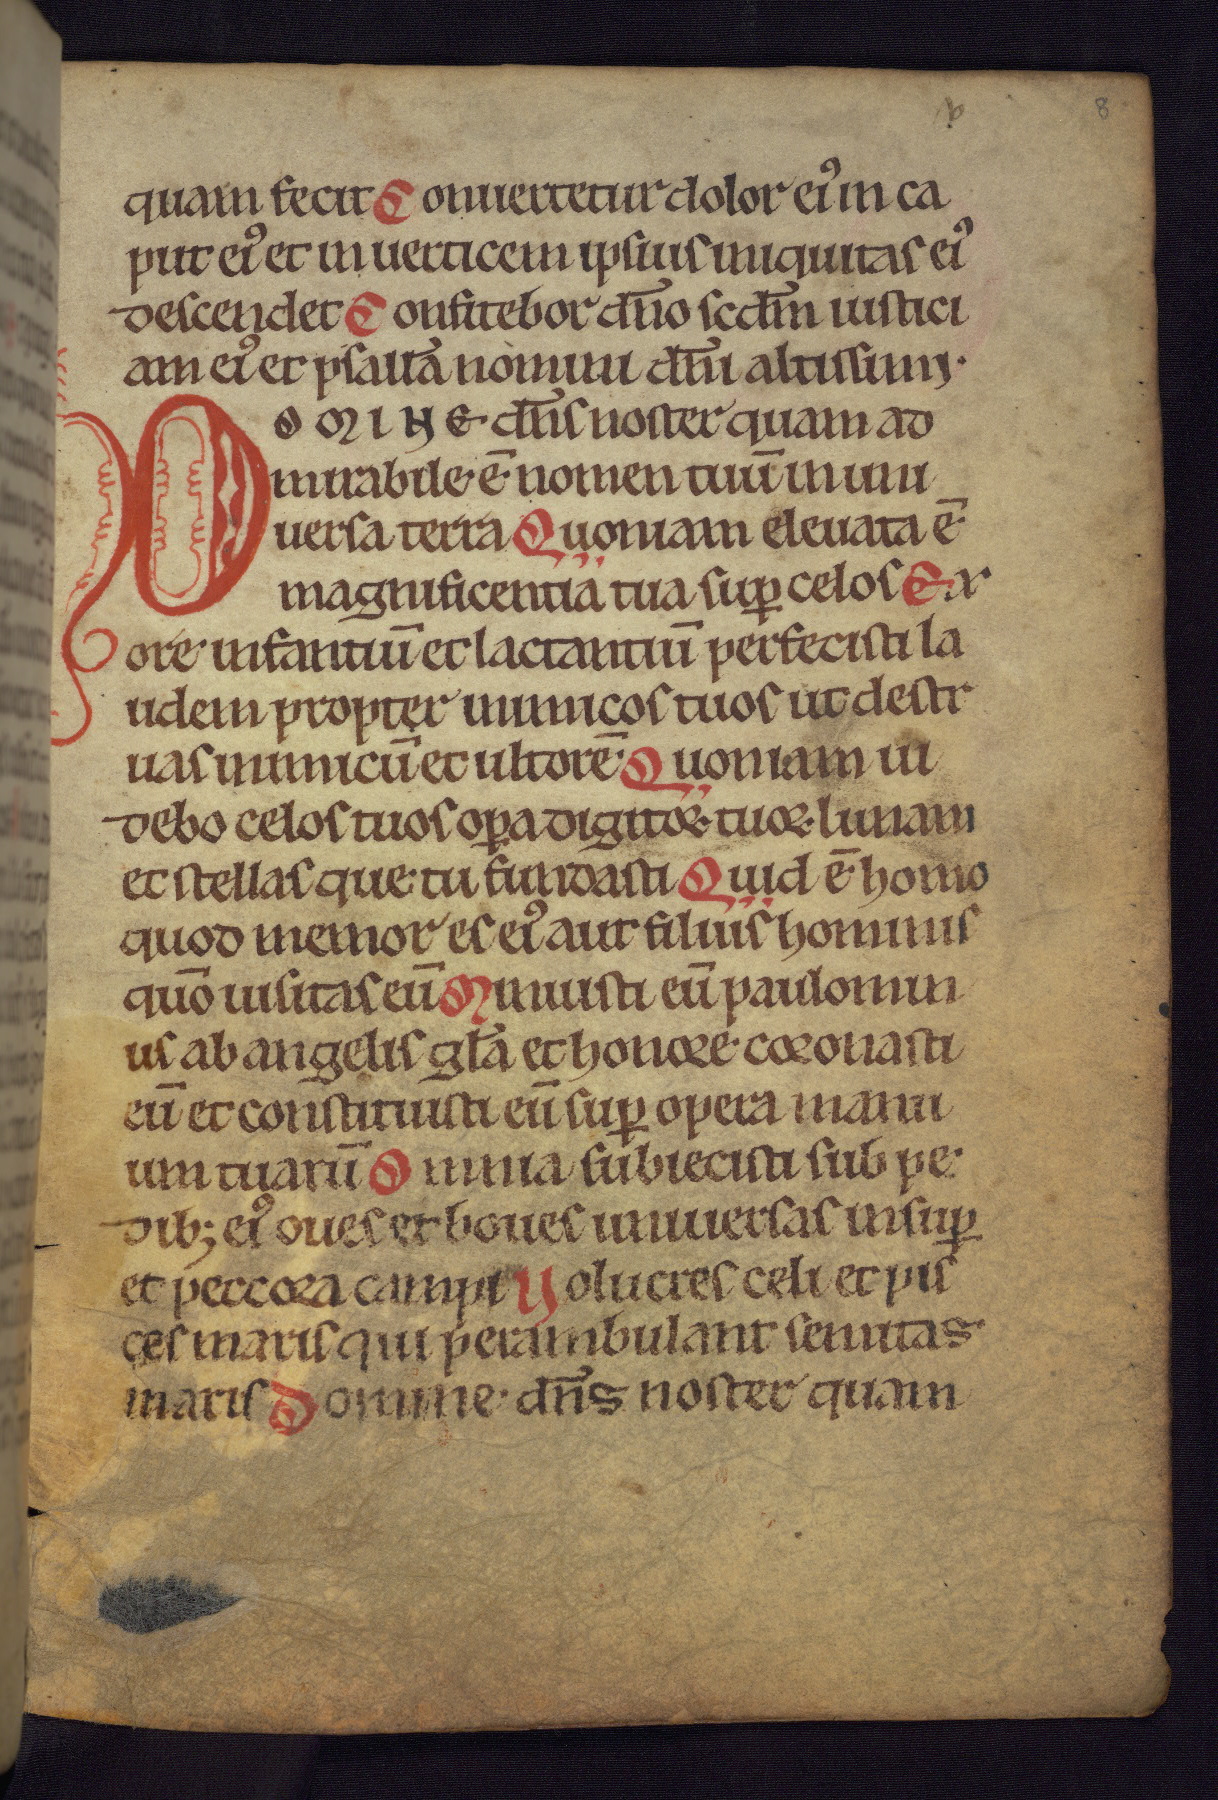 b 8
quam fecit Conuertetur dolor eiꝰ in ca
put eiꝰ et in uerticem ipsius iniquitas eiꝰ
descendet Confitebor dn̄o scdm̄ iustici
am eiꝰ et psallā nomini dn̄i altissimi·
DOMINE dn̄s noster quam ad
mirabile ē nomen tuū in uni
uersa terra Quoniam eleuata ē
magnificentia tua suꝑ celos Ex
ore infantiū et lactantiū perfecisti la
udem propter inimicos tuos ut destr
uas inimicū et ultorē Quoniam ui
debo celos tuos oꝑa digitoꝝ tuoꝝ lunam
et stellas que tu fundasti Quid ē homo
quod memor es eiꝰ aut filius hominis
quō uisitas eū Minuisti eū paulomin
us ab angelis gl̄a et honore coronasti
eū et constituisti eū suꝑ opera manu
um tuarū Omnia subiecisti sub pe
dib; eiꝰ oues et boues uniuersas insuꝑ
et peccora campi Uolucres celi et pis
ces maris qui perambulant semitas
maris Domine dn̄s noster quam